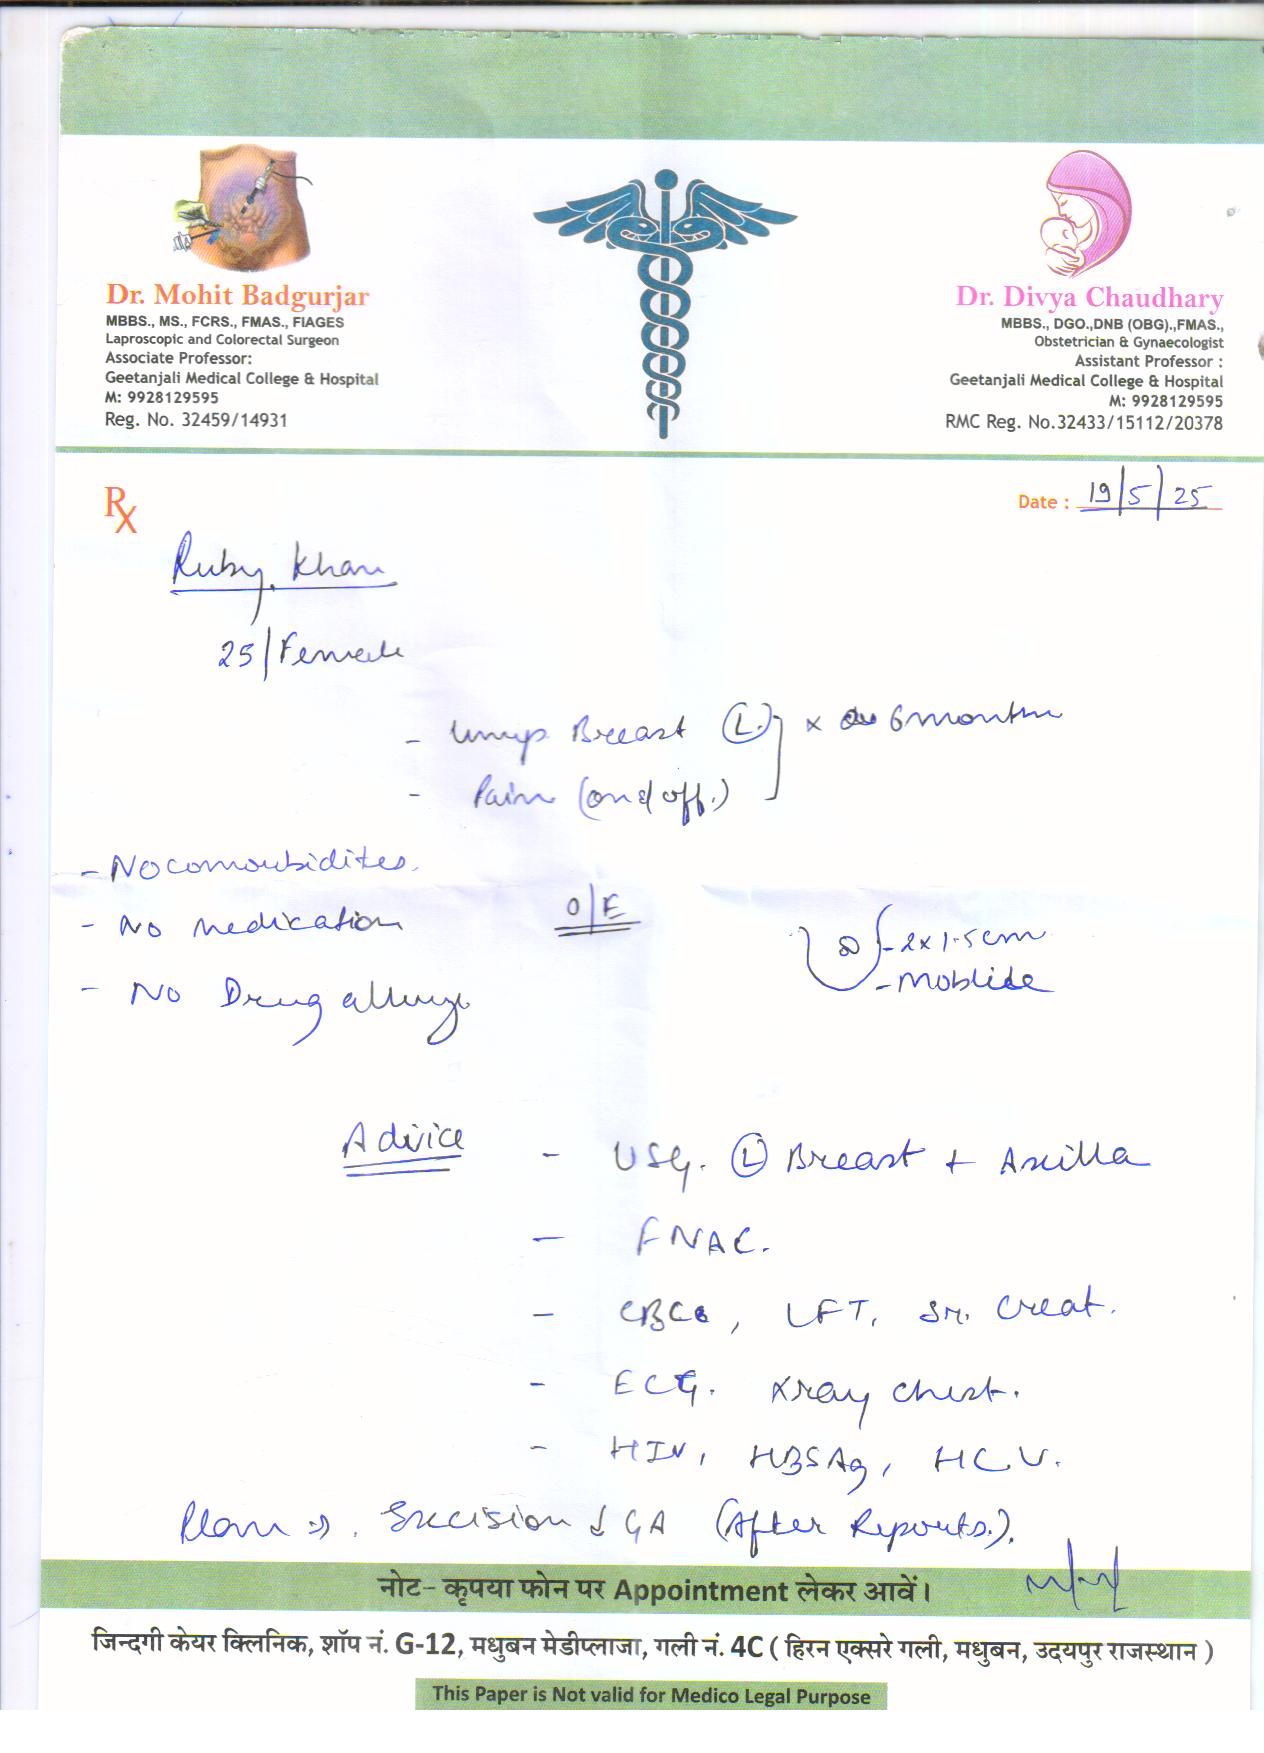 Dr. Mohit Badgurjar
MBBS., MS., FCRS., FMAS., FIAGES
Laproscopic and Colorectal Surgeon
Associate Professor:
Geetanjali Medical College & Hospital
M: 9928129595
Reg. No. 32459/14931
Dr. Divya Chaudhary
MBBS., DGO.,DNB (OBG).,FMAS.,
Obstetrician & Gynaecologist
Assistant Professor :
Geetanjali Medical College & Hospital
M: 9928129595
RMC Reg. No.32433/15112/20378
Rx
Date : 19/5/25
Ruby Khan
25/Female
- Lump Breast (L) x 6 months
- Pain (on & off.)
- No comorbidites.
- No medication
- No Drug allergy
O/E
- 2x1.5cm
- Moblile
Advice - USG. (L) Breast + Axilla
- FNAC.
- CBC, LFT, Sr. Creat.
- ECG. Xray chest.
- HIV, HBSAg, HCV.
Plan => . Excision ↓ GA (After Reports.).
नोट- कृपया फोन पर Appointment लेकर आवें।
जिन्दगी केयर क्लिनिक, शॉप नं. G-12, मधुबन मेडीप्लाजा, गली नं. 4C ( हिरन एक्सरे गली, मधुबन, उदयपुर राजस्थान )
This Paper is Not valid for Medico Legal Purpose